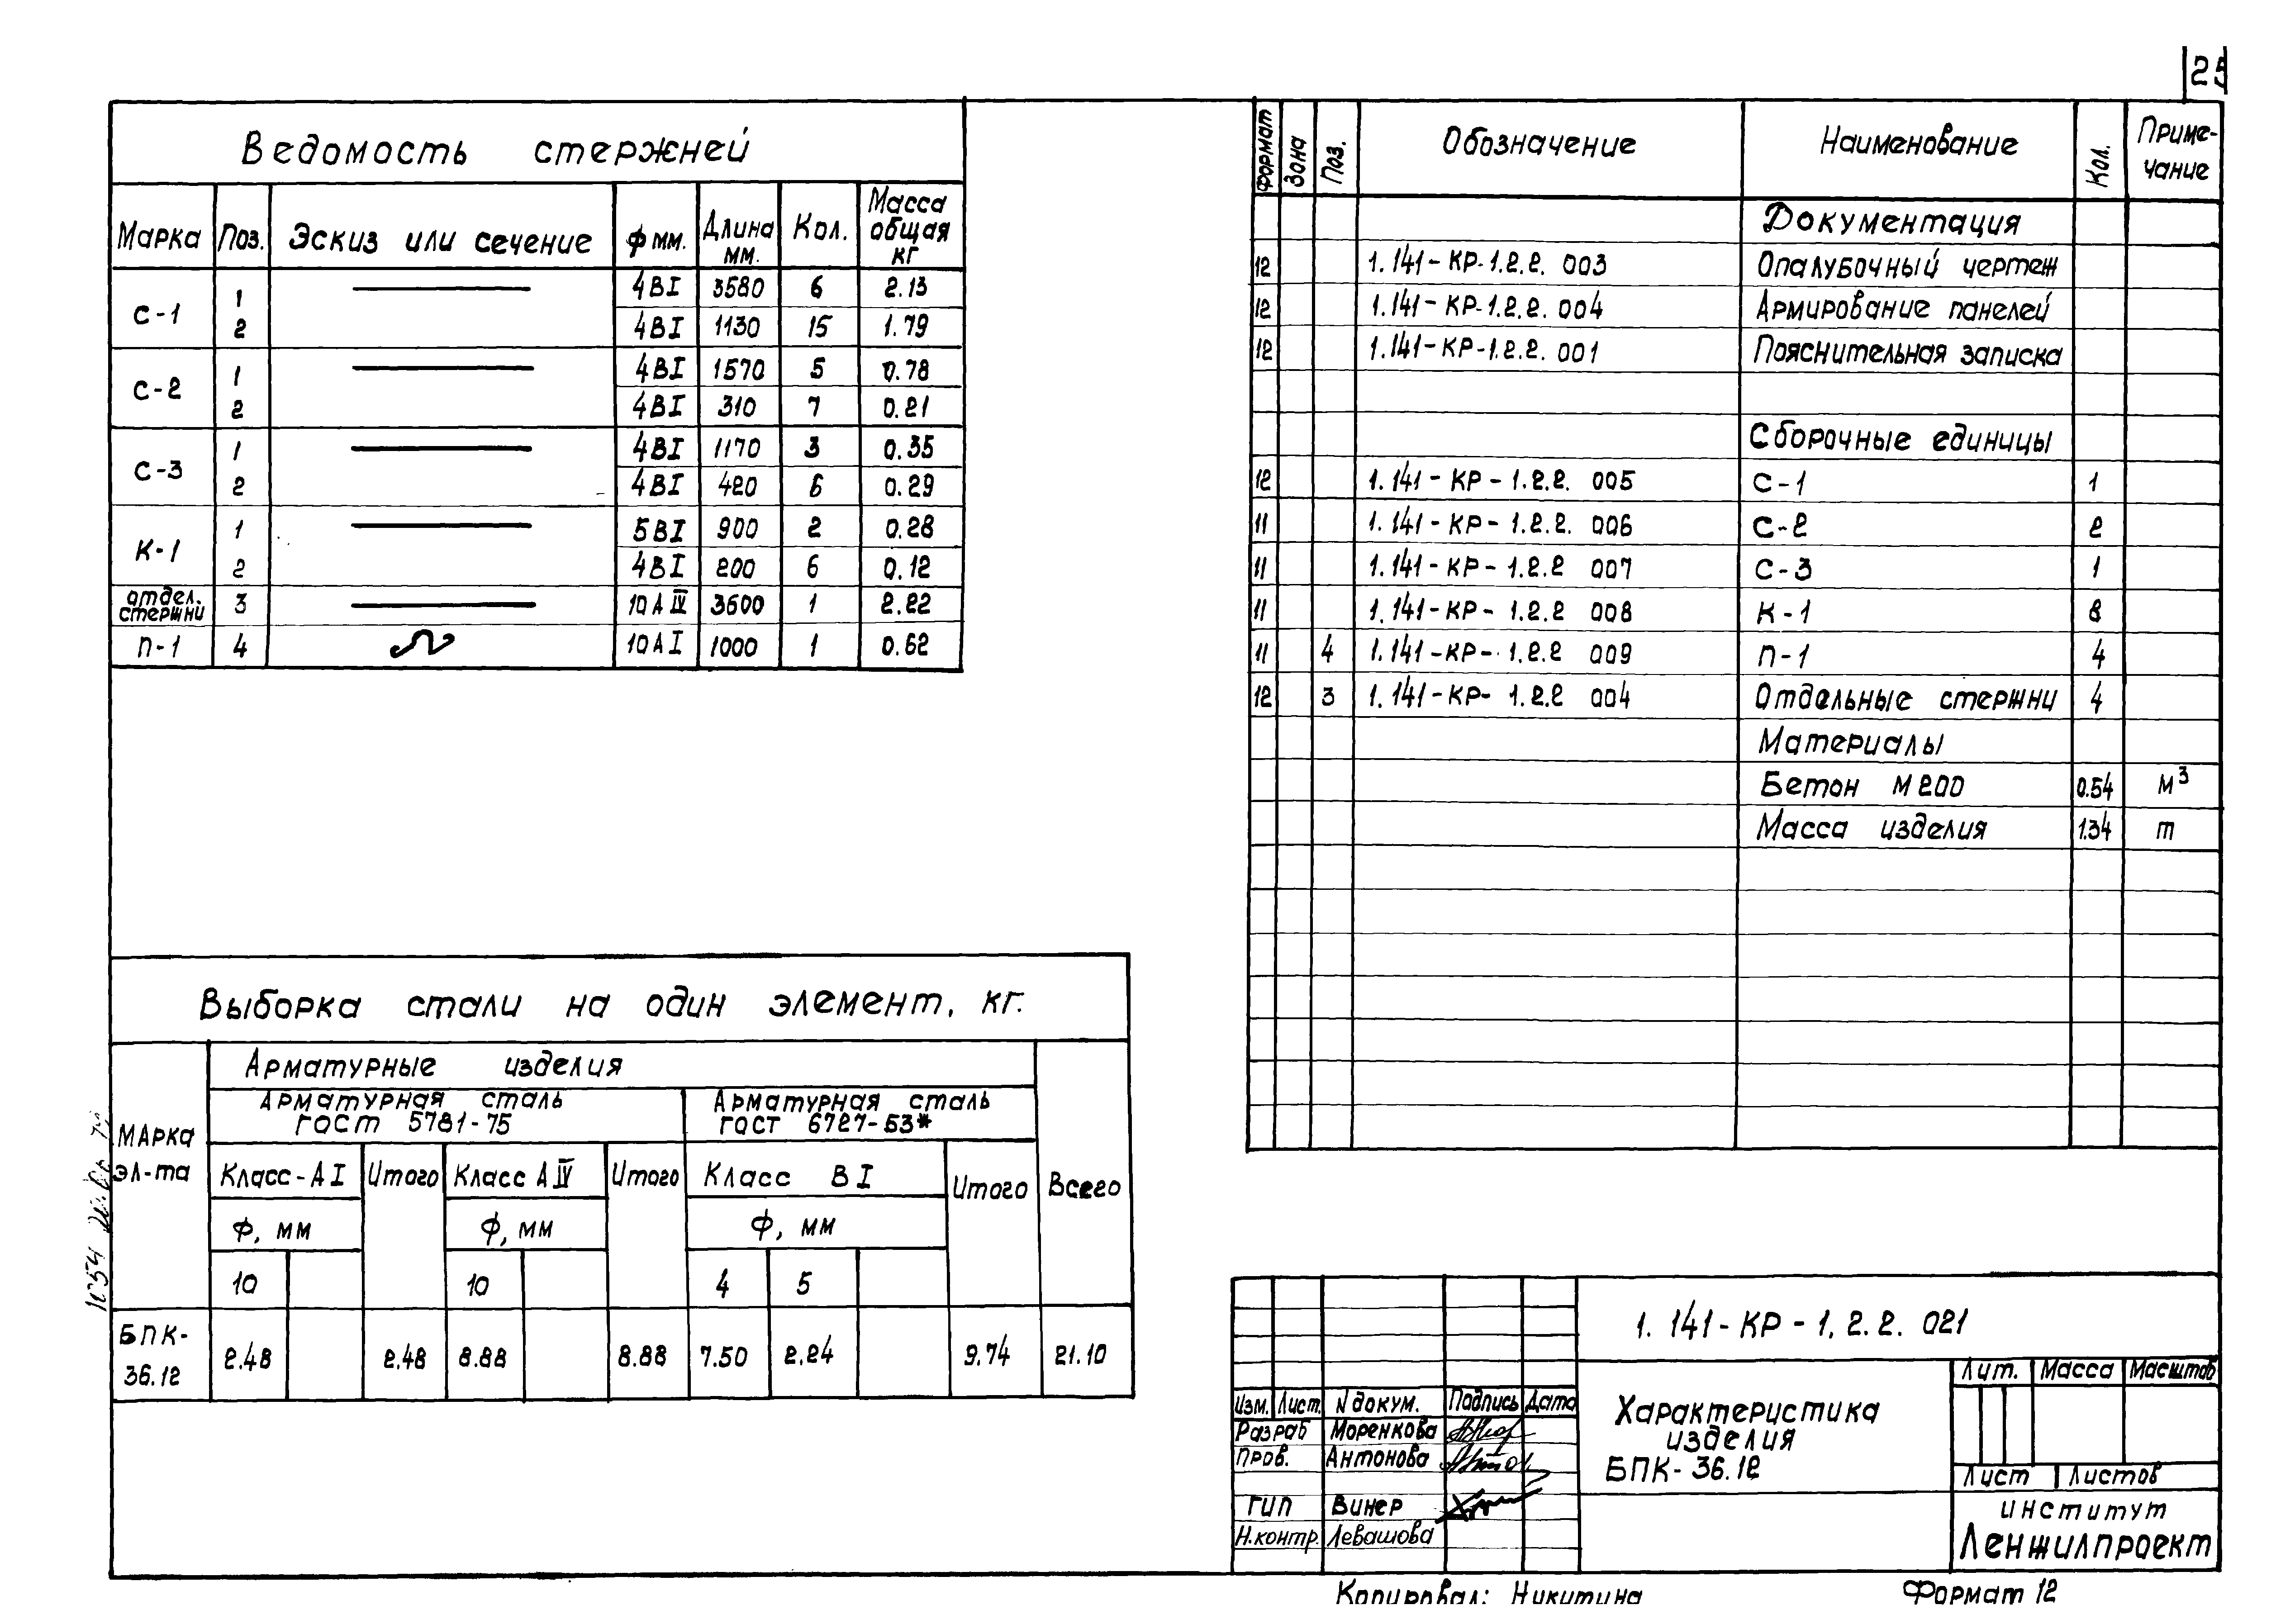 25
Ведомость стержней
Марка Поз. Эскиз или сечение ф мм. Длина мм. Кол. Масса общая кг
С-1 1 4BI 3580 6 2.13
2 4BI 1130 15 1.79
С-2 1 4BI 1570 5 0.78
2 4BI 310 7 0.21
С-3 1 4BI 1170 3 0.35
2 4BI 420 6 0.29
К-1 1 5BI 900 2 0.28
2 4BI 200 6 0.12
отдел. стержни 3 10AIV 3600 1 2.22
П-1 4 10AI 1000 1 0.62
Выборка стали на один элемент, кг.
Марка эл-та
Арматурные изделия
Арматурная сталь ГОСТ 5781-75
Арматурная сталь ГОСТ 6727-53*
Класс-АI Итого Класс АIV Итого Класс ВI Итого Всего
Ф, мм Ф, мм Ф, мм
10 10 4 5
БПК-36.12 2.48 2.48 8.88 8.88 7.50 2.24 9.74 21.10
Формат Зона Поз. Обозначение Наименование Кол. Примечание
Документация
12 1.141-КР-1.2.2. 003 Опалубочный чертеж
12 1.141-КР-1.2.2. 004 Армирование панелей
12 1.141-КР-1.2.2. 001 Пояснительная записка
Сборочные единицы
12 1.141-КР-1.2.2. 005 С-1 1
11 1.141-КР-1.2.2. 006 С-2 2
11 1.141-КР-1.2.2 007 С-3 1
11 1.141-КР-1.2.2 008 К-1 8
11 4 1.141-КР-1.2.2 009 П-1 4
12 3 1.141-КР-1.2.2 004 Отдельные стержни 4
Материалы
Бетон М200 0.54 м³
Масса изделия 1.34 т
1.141-КР-1.2.2. 021
Изм. Лист. N докум. Подпись Дата
Разраб Моренкова
Пров. Антонова
ГИП Винер
Н.контр. Левашова
Характеристика
изделия
БПК-36.12
Лит. Масса Масштаб
Лист Листов
институт
Ленжилпроект
Копировал: Никитина
Формат 12